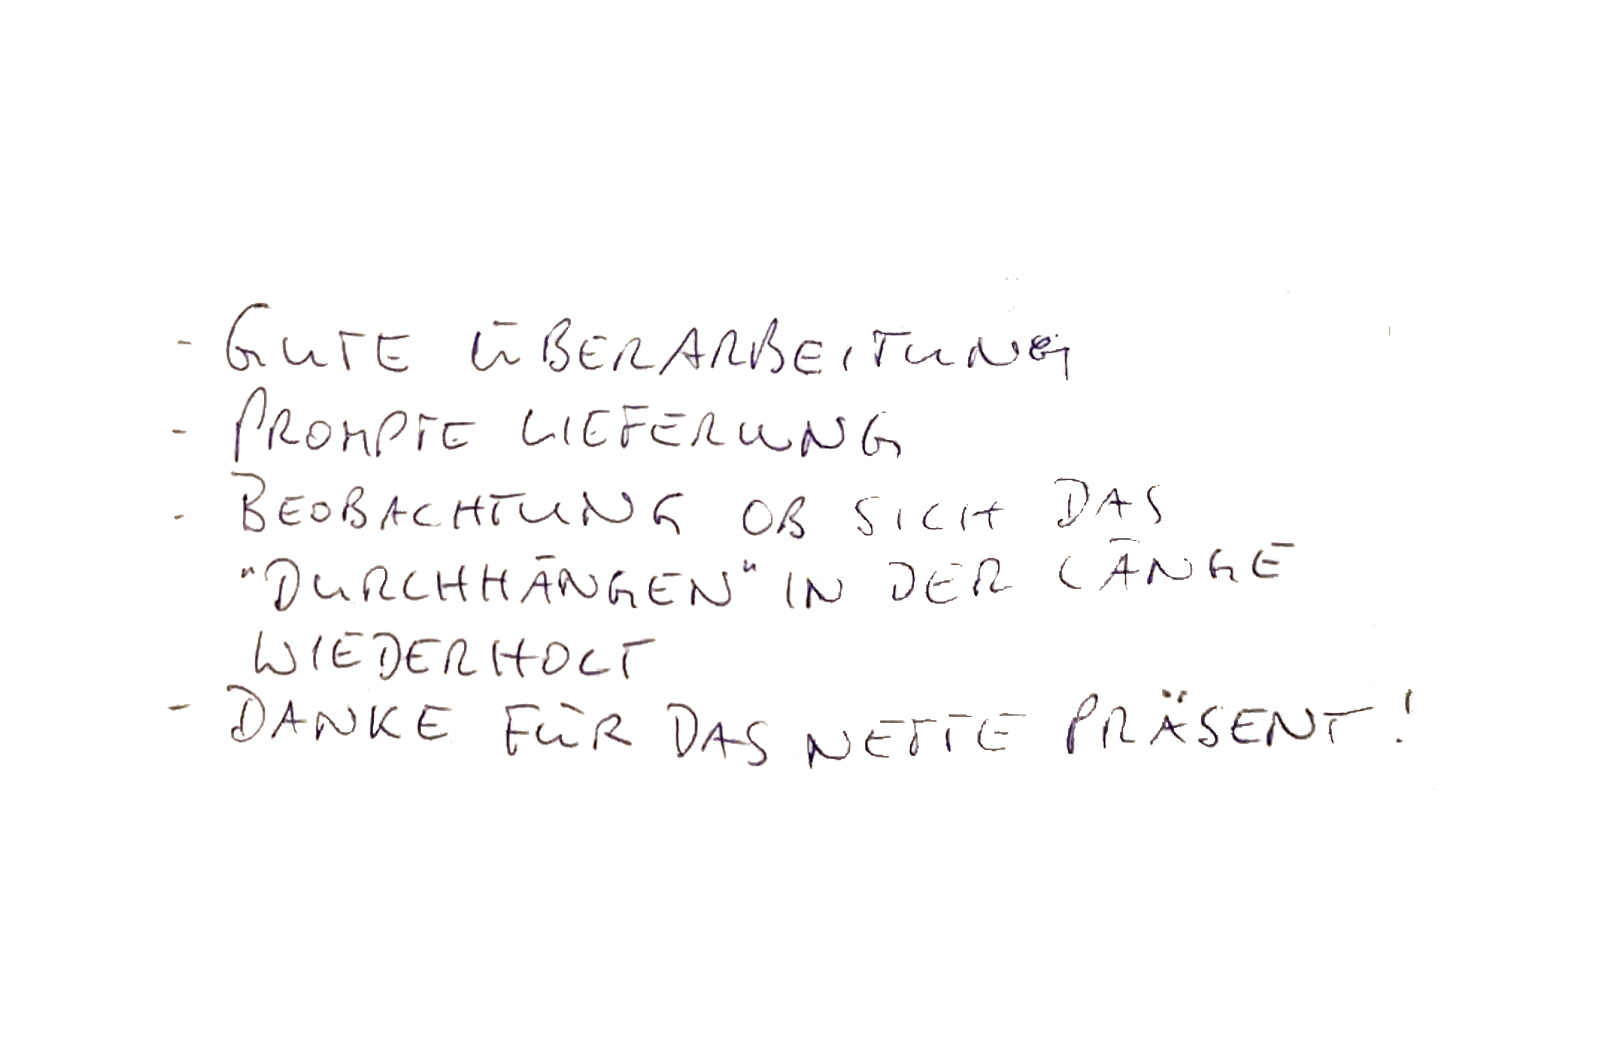 - GUTE ÜBERARBEITUNG
- PROMPTE LIEFERUNG
- BEOBACHTUNG OB SICH DAS
"DURCHHÄNGEN" IN DER LÄNGE
WIEDERHOLT
- DANKE FÜR DAS NETTE PRÄSENT!